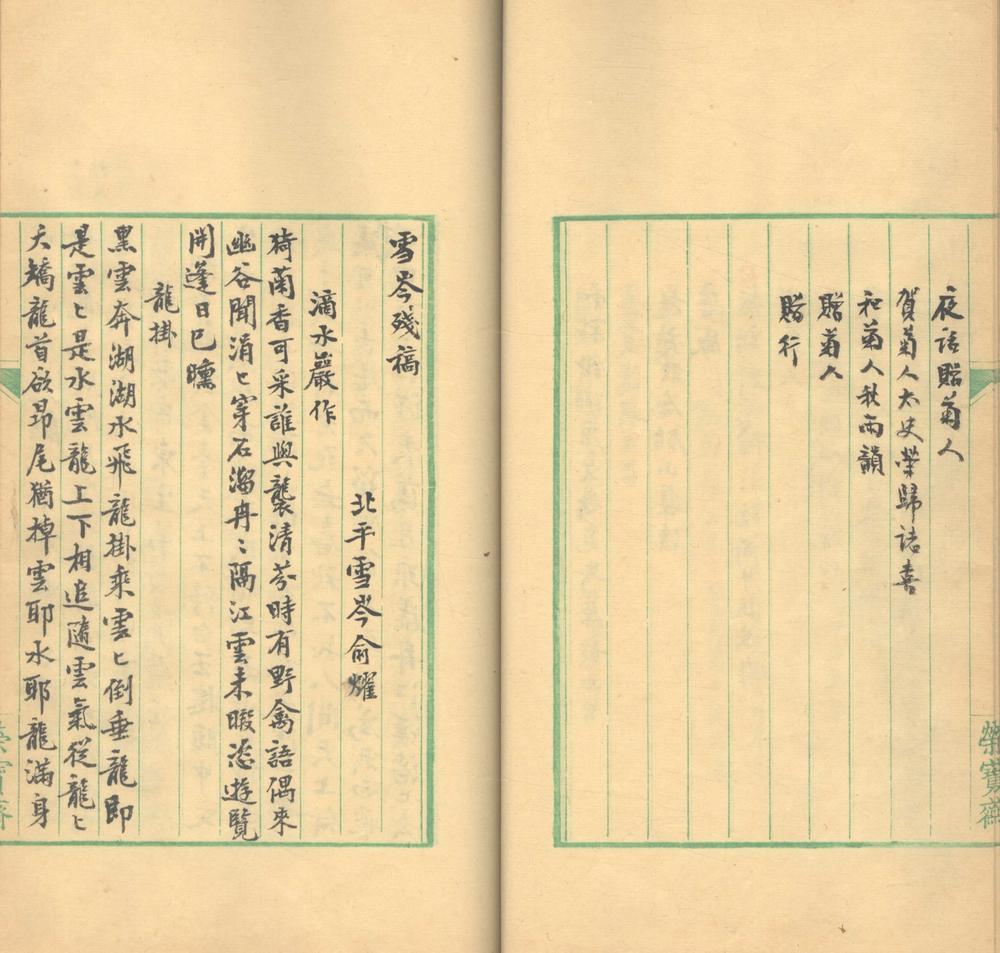 夜話贈菊人
賀菊人太史榮歸誌喜
和菊人秋雨韻
贈菊人
贈行
榮寶齋
雪岑殘稿
北平雪岑俞燿
滴水巖作
猗蘭香可采誰與襲清芬時有野禽語偶來
幽谷聞涓〻穿石溜冉〻隔江雲未暇恣遊覽
開蓬日已曛
龍掛
黑雲奔湖湖水飛龍掛乘雲〻倒垂龍即
是雲〻是水雲龍上下相追隨雲氣從龍〻
夭矯龍首欲昂尾猶掉雲耶水耶龍滿身
榮寶齋